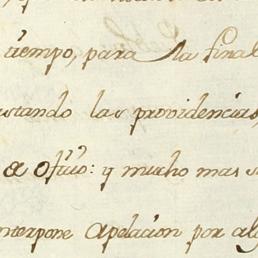 tiempo, para la final
ustando las providencias,
a ofizio: y mucho mas s
nterpone apelacion por alg